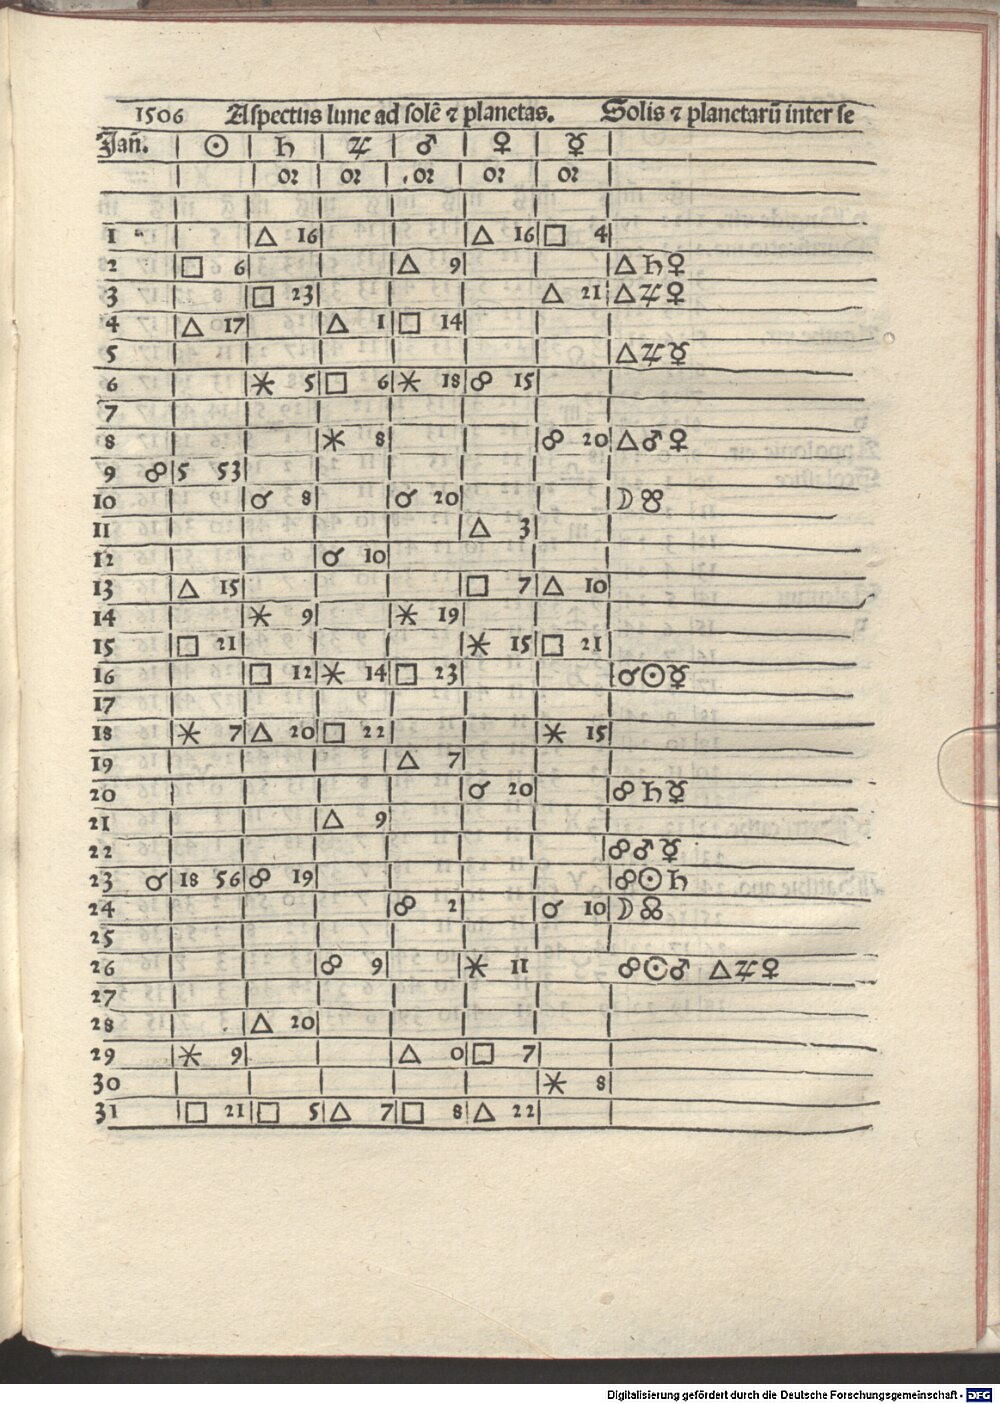 1506 Aspectus lune ad solē ⁊ planetas. Solis ⁊ planetarū inter se
Jan̄. | ☉ | ♄ | ♃ | ♂ | ♀ | ☿ |
| | oꝛ | oꝛ | oꝛ | oꝛ | oꝛ |
1 | | △ 16 | | | △ 16 | □ 4 |
2 | □ 6 | | | △ 9 | | | △ ♄ ♀
3 | | □ 23 | | | | △ 21 | △ ♃ ♀
4 | △ 17 | | △ 1 | □ 14 | | |
5 | | | | | | | △ ♃ ☿
6 | | ⚹ 5 | □ 6 | ⚹ 18 | ☍ 15 | |
7 | | | | | | |
8 | | | ⚹ 8 | | | ☍ 20 | △ ♂ ♀
9 ☍ | 5 53 | | | | | |
10 | | ☌ 8 | | ☌ 20 | | | ☽ ☋
11 | | | | | △ 3 | |
12 | | | ☌ 10 | | | |
13 | △ 15 | | | | □ 7 | △ 10 |
14 | | ⚹ 9 | | ⚹ 19 | | |
15 | □ 21 | | | | ⚹ 15 | □ 21 |
16 | | □ 12 | ⚹ 14 | □ 23 | | | ☌ ☉ ☿
17 | | | | | | |
18 | ⚹ 7 | △ 20 | □ 22 | | | ⚹ 15 |
19 | | | | △ 7 | | |
20 | | | | | ☌ 20 | | ☍ ♄ ☿
21 | | | △ 9 | | | |
22 | | | | | | | ☍ ♂ ☿
23 ☌ | 18 56 | ☍ 19 | | | | | ☍ ☉ ♄
24 | | | | ☍ 2 | | ☌ 10 | ☽ ☊
25 | | | | | | |
26 | | | ☍ 9 | | ⚹ 11 | | ☍ ☉ ♂ △ ♃ ♀
27 | | | | | | |
28 | | △ 20 | | | | |
29 | ⚹ 9 | | | △ 0 | □ 7 | |
30 | | | | | | ⚹ 8 |
31 | □ 21 | □ 5 | △ 7 | □ 8 | △ 22 | |
Digitalisierung gefördert durch die Deutsche Forschungsgemeinschaft - DFG